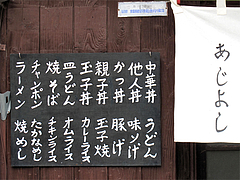 あじよし
中華丼
他人丼
かつ丼
親子丼
玉子丼
皿うどん
焼そば
チャンポン
ラーメン
うどん
味ソ汁
豚汁
玉子焼
カレーライス
オムライス
チキンライス
たかなめし
焼めし